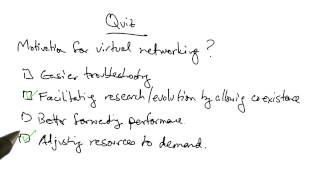 Quiz
Motivation for virtual networking?
Easier troubleshooting
Facilitating research/evolution by allowing coexistence
Better forwarding performance
Adjusting resources to demand.